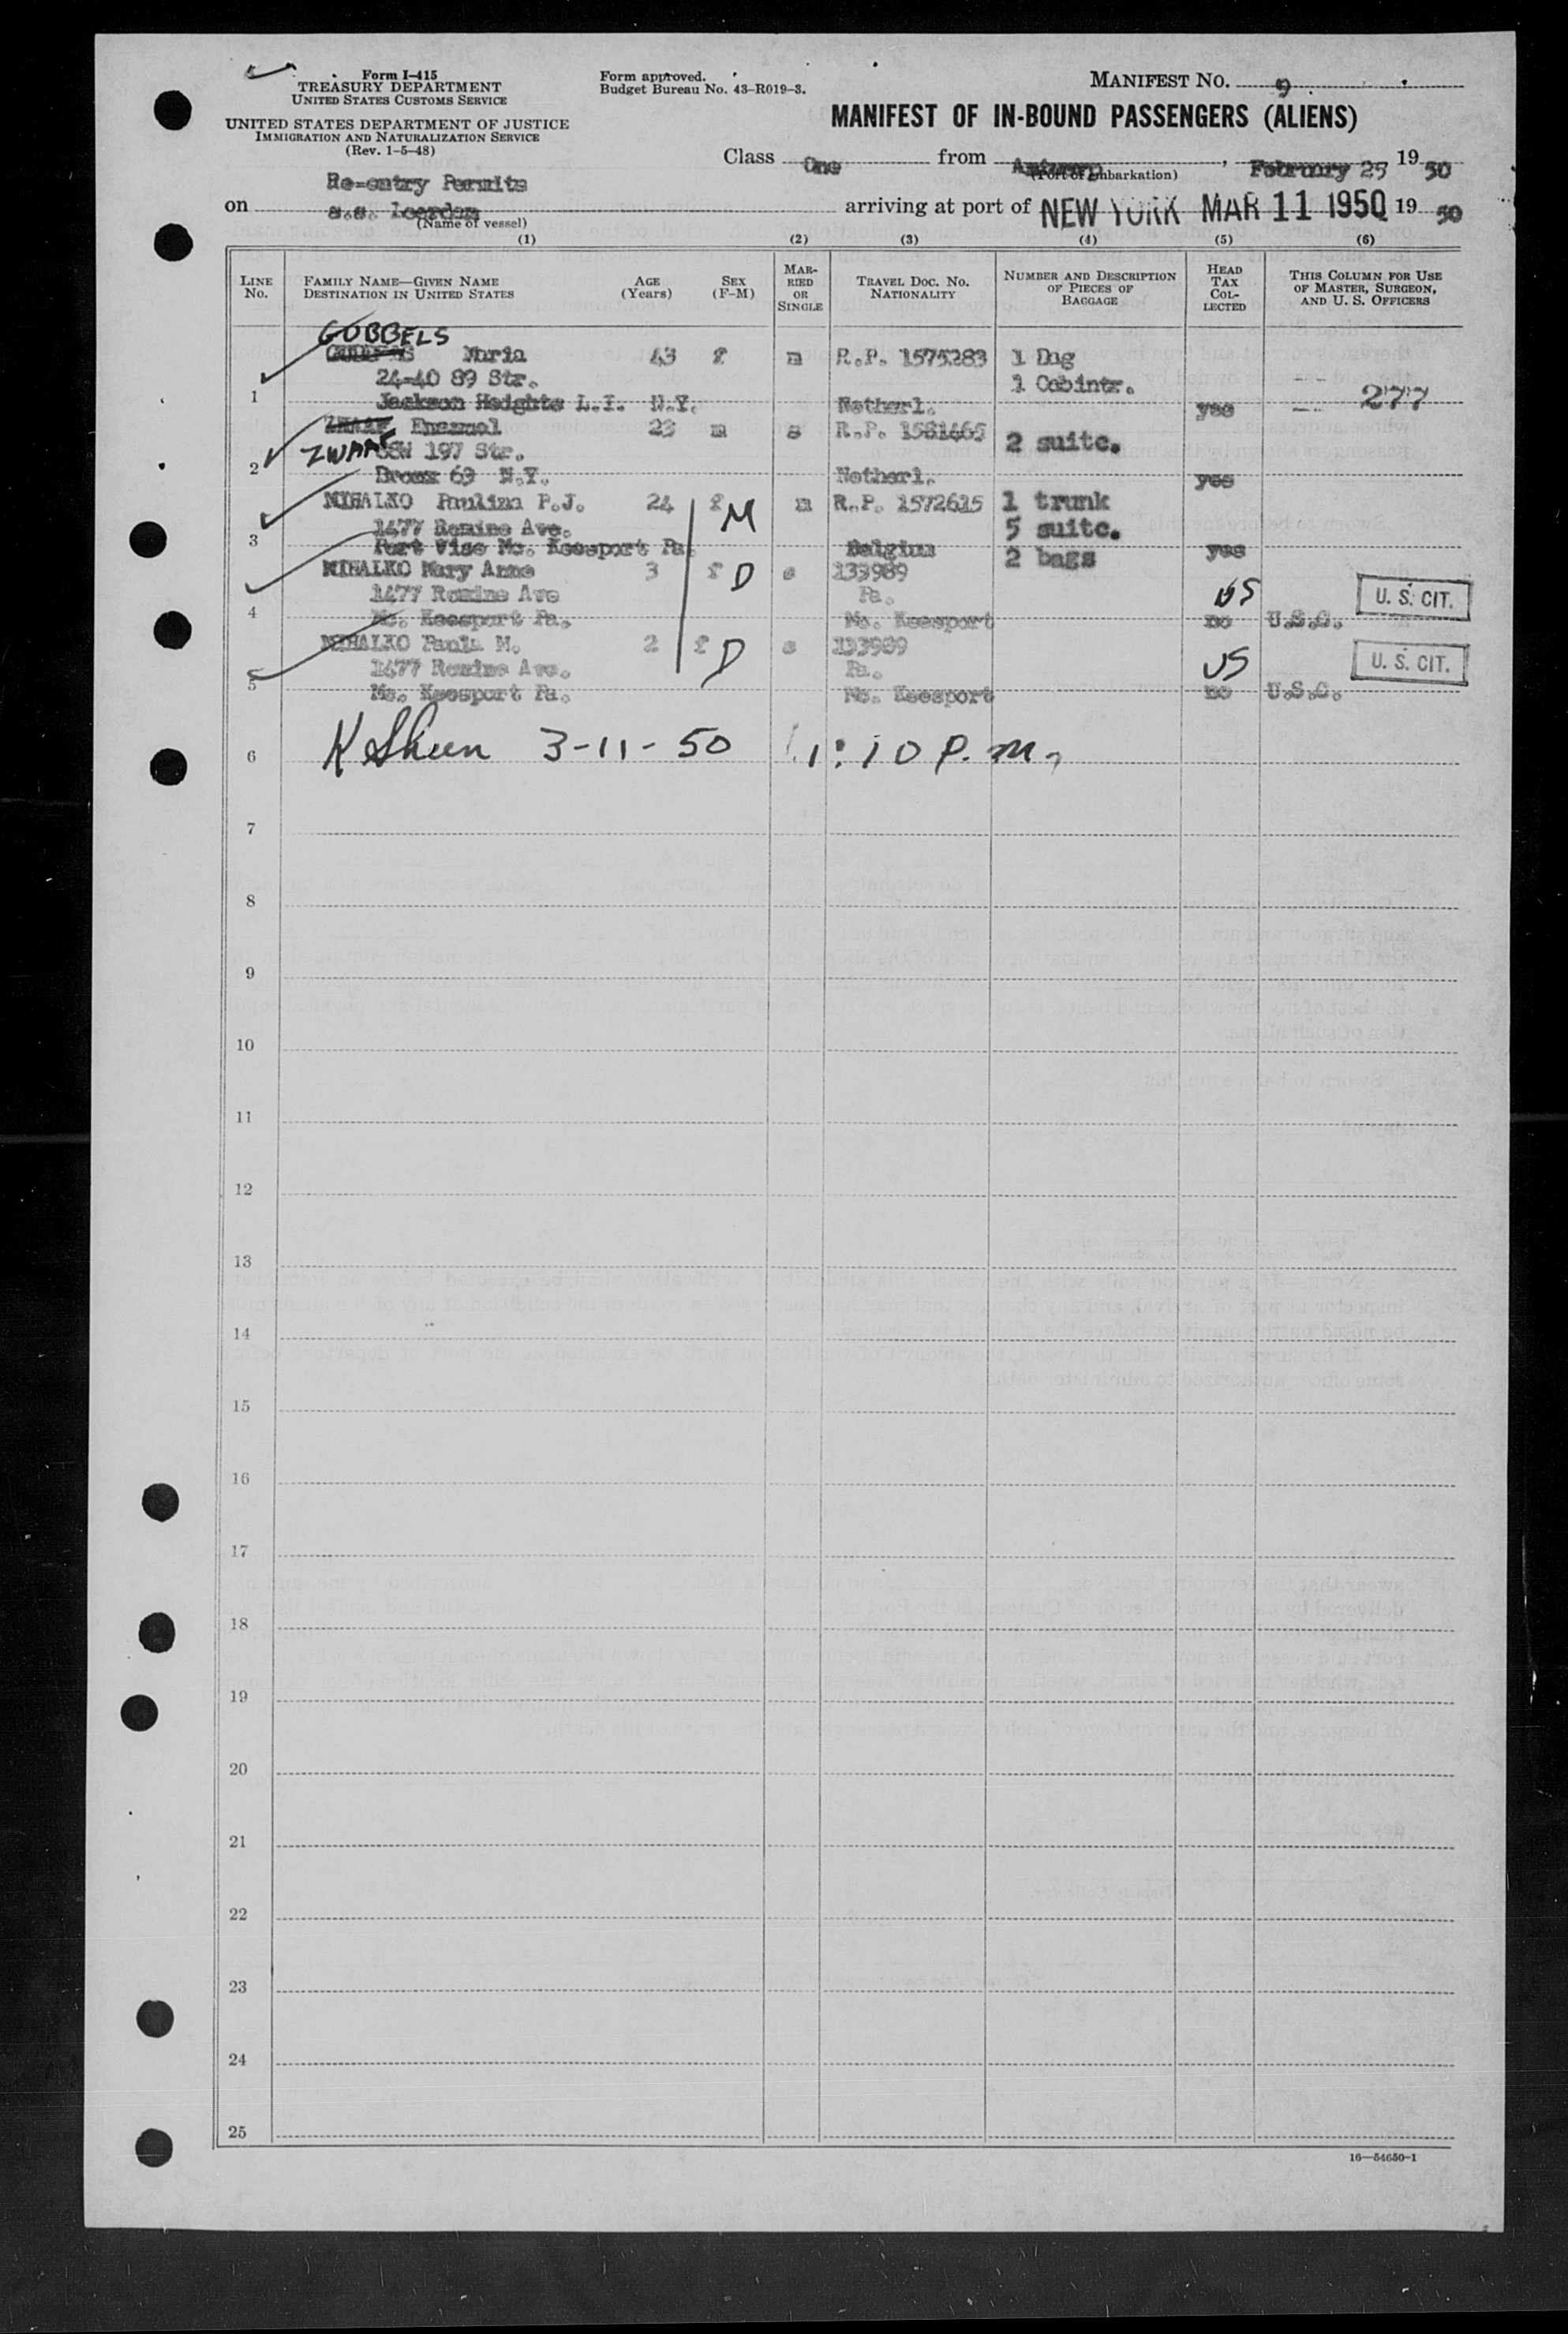 Form I-415
TREASURY DEPARTMENT
UNITED STATES CUSTOMS SERVICE
UNITED STATES DEPARTMENT OF JUSTICE
IMMIGRATION AND NATURALIZATION SERVICE
(Rev. 1-5-48)
Form approved.
Budget Bureau No. 43-R019-3.
MANIFEST NO. 9
MANIFEST OF IN-BOUND PASSENGERS (ALIENS)
Class One from Antwerp, February 25 19 50
(Port of embarkation)
Re-entry Permits
on s.s. Leerdam arriving at port of NEW YORK MAR 11 1950 19 50
(Name of vessel)
(1) (2) (3) (4) (5) (6)
LINE No. FAMILY NAME—GIVEN NAME DESTINATION IN UNITED STATES AGE (Years) SEX (F-M) MARRIED OR SINGLE TRAVEL DOC. NO. NATIONALITY NUMBER AND DESCRIPTION OF PIECES OF BAGGAGE HEAD TAX COLLECTED THIS COLUMN FOR USE OF MASTER, SURGEON, AND U. S. OFFICERS
GOBBELS
Maria 43 f m R.P. 1575283 1 Bag
24-40 89 Str. 1 Cabintr.
1 Jackson Hedghts L.I. N.Y. Netherl. yes 277
23 m s R.P. 1581465 2 suitc.
ZWAAF 197 Str.
2 Bronx 63 N.Y. Netherl. yes
MIHALKO Paulina P.J. 24 f M m R.P. 1572615 1 trunk
1477 Romine Ave. 5 suitc.
3 Port Viso Mc. Keesport Pa. Belgium 2 bags yes
MIHALKO Mary Anne 3 f D s 133989
1477 Romine Ave Pa. US U. S. CIT.
4 Mc. Keesport Pa. Mc. Keesport no U.S.C.
MIHALKO Paula M. 2 f D s 133989
1477 Romine Ave. Pa. US U. S. CIT.
5 Mc. Keesport Pa. Mc. Keesport no U.S.C.
6 K Sheen 3-11-50 1:10 P.M.
7
8
9
10
11
12
13
14
15
16
17
18
19
20
21
22
23
24
25
16—54650-1